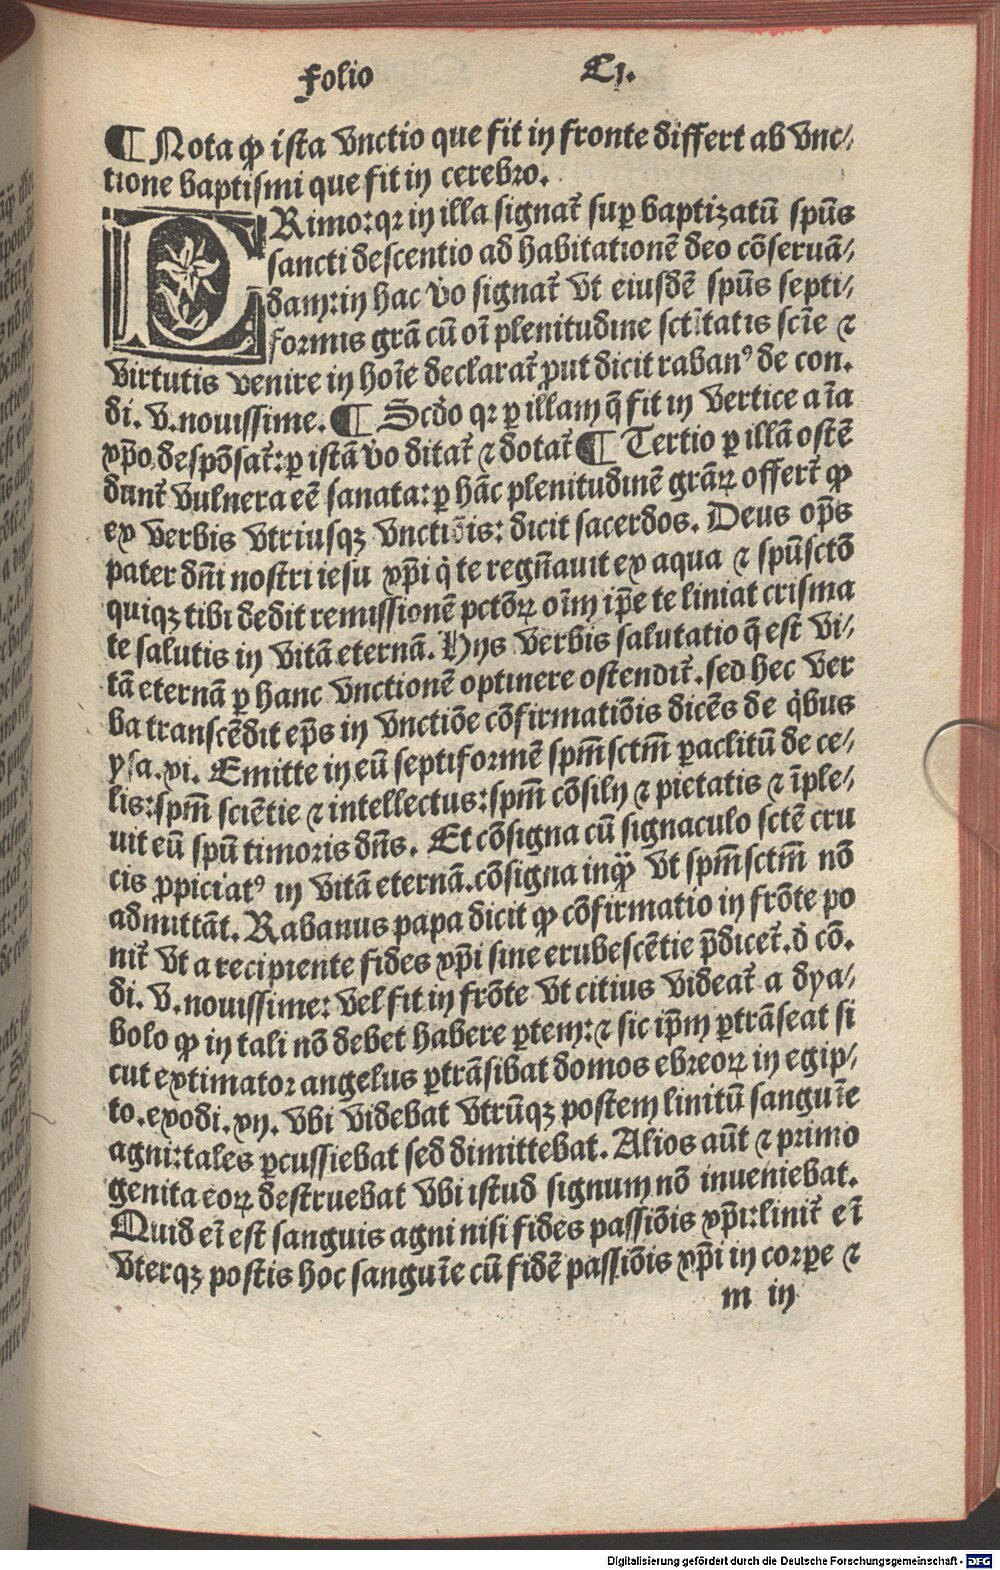 Folio CI.
¶ Nota ꝙ ista vnctio que fit in fronte differt ab vnc⸗
tione baptismi que fit in cerebro.
PRimo: qꝛ in illa signat̃ sup baptizatũ spũs
sancti descentio ad habitationẽ deo cõseruã⸗
dam: in hac v̊o signat̃ vt eiusdẽ spũs septi⸗
formis grã cũ oĩ plenitudine sctĩtatis scĩe ⁊
virtutis venire in hoĩe declarat̃ ꝓut dicit rabanꝰ de con.
di. v. nouissime. ¶ Scd̃o qꝛ ꝑ illam q̃ fit in vertice aĩa
xp̃o despõsat̃: ꝑ istã v̊o ditat̃ ⁊ dotat̃ ¶ Tertio ꝑ illã ostẽ
dunt̃ vulnera eẽ sanata: ꝑ hãc plenitudinẽ grãꝝ offert̃ ꝙ
ex verbis vtriusqꝫ vnctiõis: dicit sacerdos. Deus op̃s
pater dñi nostri iesu xp̃i q̇ te regñauit ex aqua ⁊ spũsctõ
quiqꝫ tibi dedit remissionẽ pctõꝝ oĩm ip̃e te liniat crisma
te salutis in vitã eternã. Hijs verbis salutatio q̃ est vi⸗
tã eternã ꝑ hanc vnctionẽ optinere ostendit̃. sed hec ver
ba transcẽdit ep̃s in vnctiõe cõfirmatiõis dicẽs de q̇bus
ysa. xi. Emitte in eũ septiformẽ spm̃ sctm̃ ꝑaclitũ de ce⸗
lis: spm̃ sciẽtie ⁊ intellectus: spm̃ cõsilij ⁊ pietatis ⁊ ĩple⸗
uit eũ spũ timoris dñs. Et cõsigna cũ signaculo sctẽ cru
cis ꝓpiciatꝰ in vitã eternã. cõsigna inqͣ vt spm̃ sctm̃ nõ
admittãt. Rabanus papa dicit ꝙ cõfirmatio in frõte po
nit̃ vt a recipiente fides xp̃i sine erubescẽtie p̃dicet̃. d̓ cõ.
di. v. nouissime: vel fit in frõte vt citius videat̃ a dya⸗
bolo ꝙ in tali nõ debet habere ꝑtem: ⁊ sic ip̃m ꝑtrãseat si
cut extimator angelus ꝑtrãsibat domos ebreoꝝ in egip⸗
to. exodi. xij. vbi videbat vtrũqꝫ postem linitũ sanguĩe
agni: tales ꝑcussiebat sed dimittebat. Alios aũt ⁊ primo
genita eoꝝ destruebat vbi istud signum nõ inueniebat.
Quid eĩ est sanguis agni nisi fides passiõis xp̃i: linit̃ eĩ
vterqꝫ postis hoc sanguĩe cũ fidẽ passiõis xp̃i in corꝑe ⁊
m iij
Digitalisierung gefördert durch die Deutsche Forschungsgemeinschaft - DFG